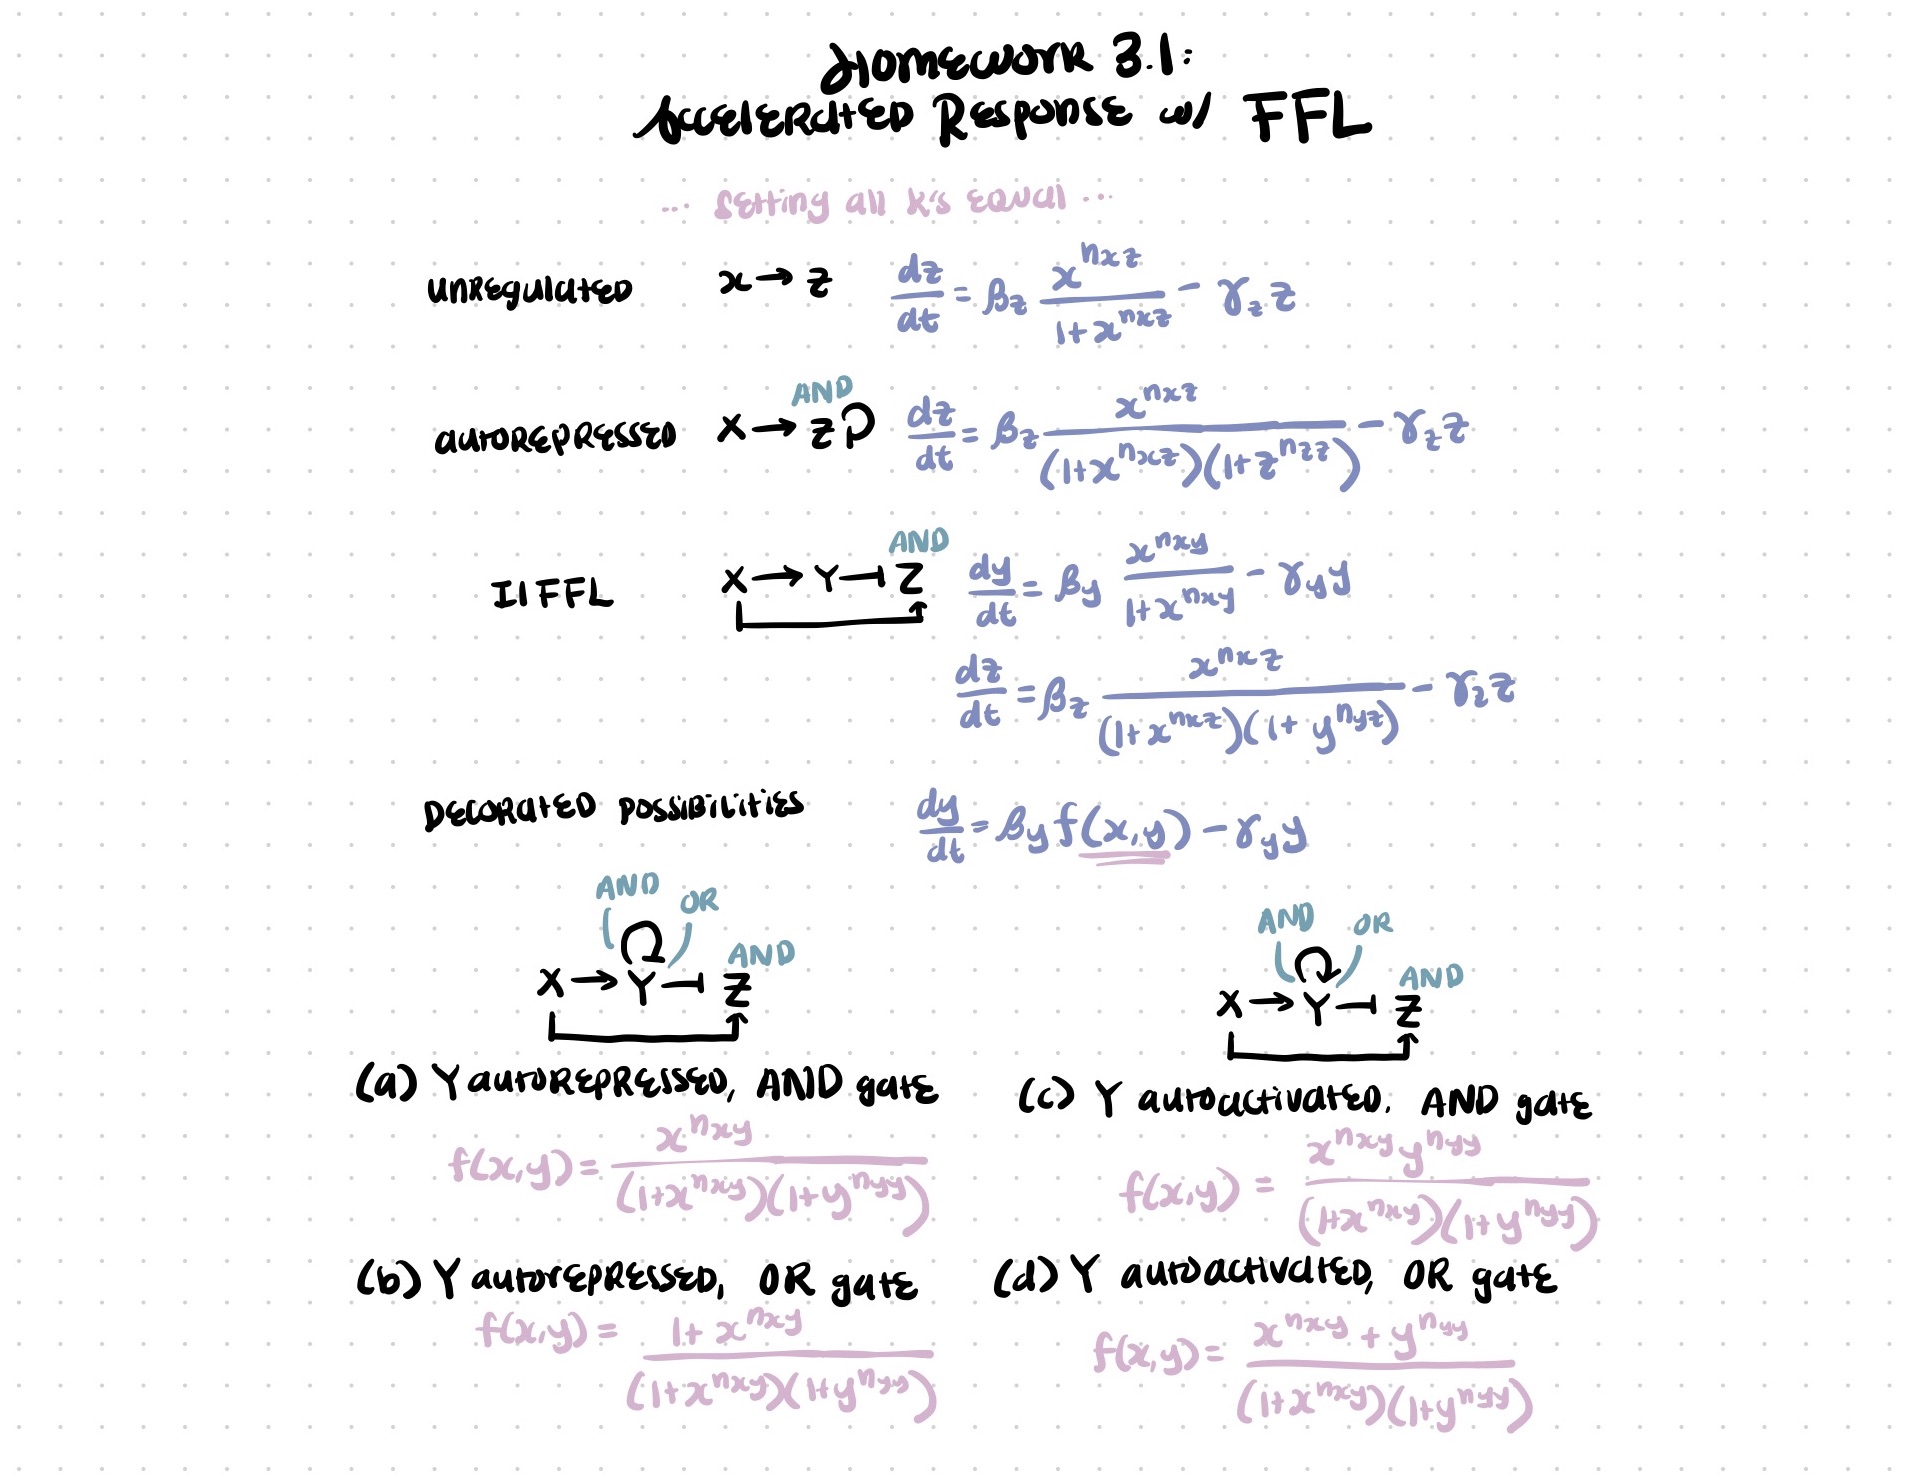 Homework 3.1:
Accelerated Response w/ FFL
... setting all k's equal ...
unregulated x → z dz/dt = β_z x^{n_{xz}} / (1 + x^{n_{xz}}) - γ_z z
AND
autorepressed X → Z dz/dt = β_z x^{n_{xz}} / ((1 + x^{n_{xz}})(1 + z^{n_{zz}})) - γ_z z
AND
I1 FFL X → Y ⊣ Z dy/dt = β_y x^{n_{xy}} / (1 + x^{n_{xy}}) - γ_y y
dz/dt = β_z x^{n_{xz}} / ((1 + x^{n_{xz}})(1 + y^{n_{yz}})) - γ_z z
Decorated possibilities dy/dt = β_y f(x,y) - γ_y y
AND OR
AND
X → Y ⊣ Z
(a) Y autorepressed, AND gate
f(x,y) = x^{n_{xy}} / ((1 + x^{n_{xy}})(1 + y^{n_{yy}}))
(b) Y autorepressed, OR gate
f(x,y) = (1 + x^{n_{xy}}) / ((1 + x^{n_{xy}})(1 + y^{n_{yy}}))
AND OR
AND
X → Y ⊣ Z
(c) Y autoactivated, AND gate
f(x,y) = x^{n_{xy}} y^{n_{yy}} / ((1 + x^{n_{xy}})(1 + y^{n_{yy}}))
(d) Y autoactivated, OR gate
f(x,y) = (x^{n_{xy}} + y^{n_{yy}}) / ((1 + x^{n_{xy}})(1 + y^{n_{yy}}))